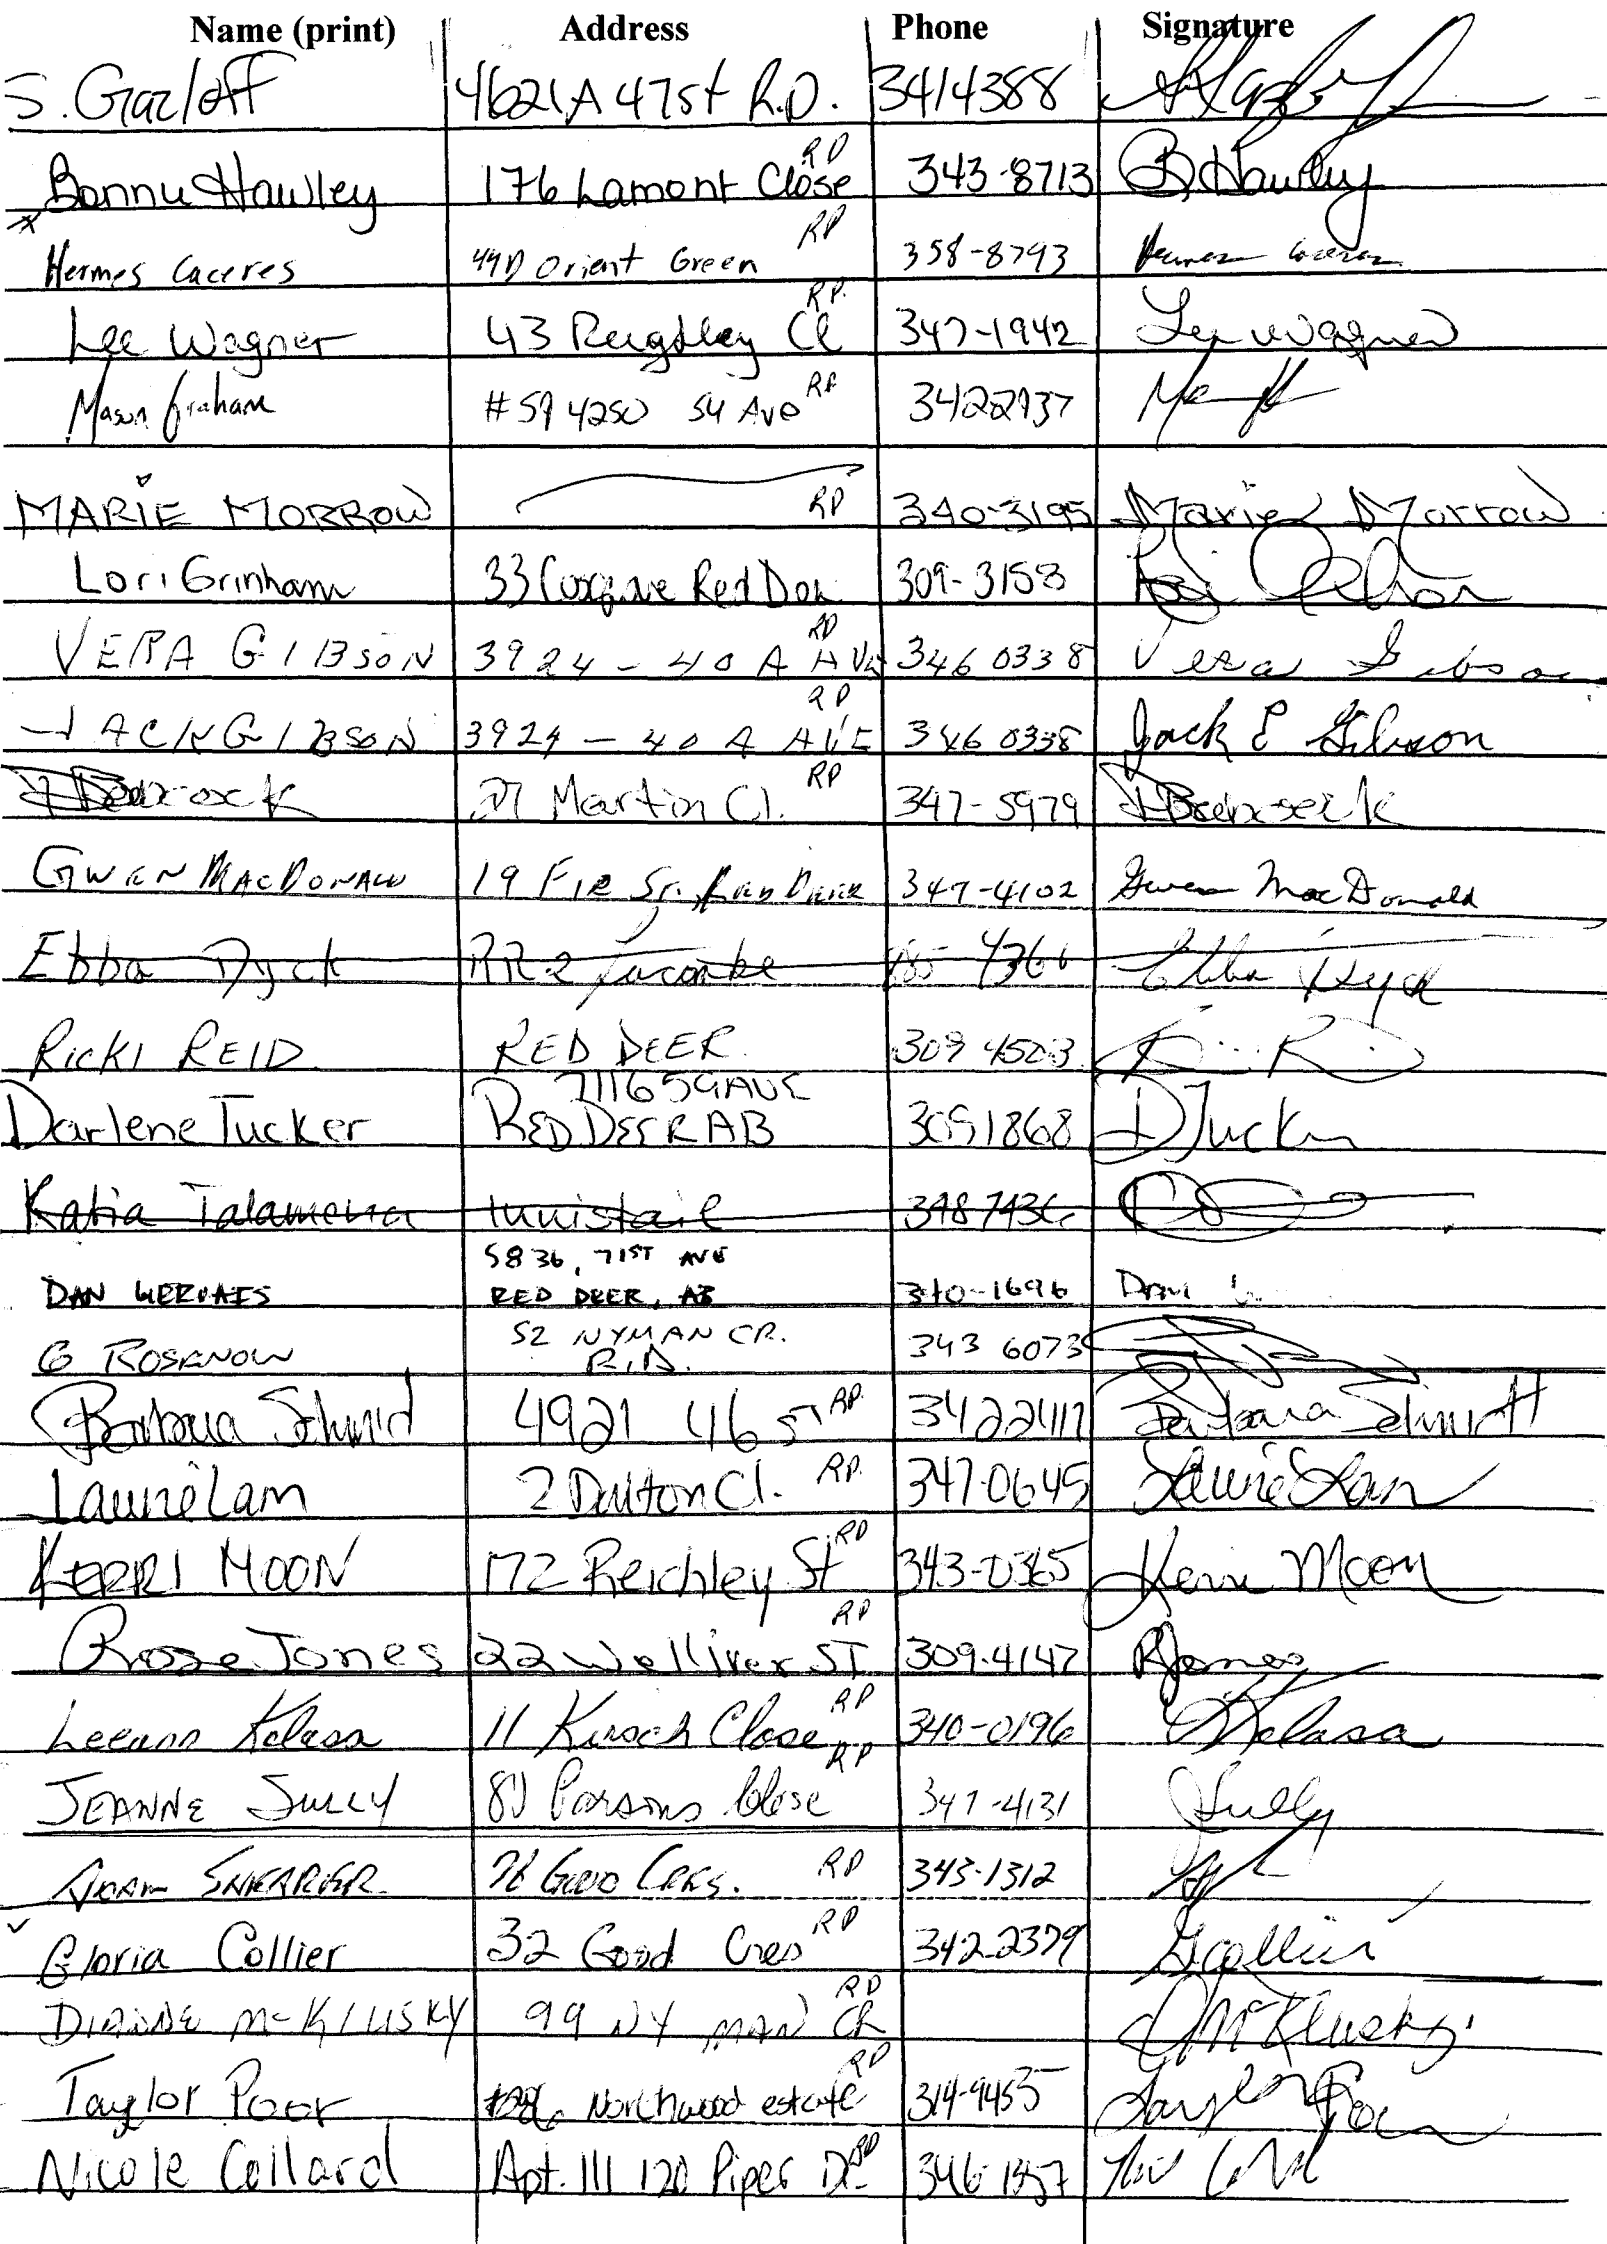 Name (print) Address Phone Signature
S. Gazloff 4621A 47st R.D. 3414388
RD
Bonnie Hawley 176 Lamont Close 343-8713 B Hawley
RD
Hermes Caceres 44D Orient Green 358-8793 Hermes Caceres
RD.
Lee Wagner 43 Cl 347-1942 Lee Wagner
RD
Mason Graham #59 4250 54 Ave 3422937
MARIE MORROW RD 340-3195 Marie Morrow
Lori Grinham 33 Cosgrave Red Deer 309-3158
RD
VERA GIBSON 3924 - 40 A AVE 346 0338 Vera Gibson
RD
JACK GIBSON 3924 - 40 A AVE 346 0338 Jack E Gibson
RD
27 Martin Cl. 347-5979
GWEN MACDONALD 19 FIR ST. RED DEER 347-4102 Gwen MacDonald
Ebba Dyck RR2 Lacombe 4366 Ebba Dyck
RICKI REID RED DEER 309 4503
71165GAVE
Darlene Tucker RED DEER AB 3091868 D Tucker
Katia Talamona Innisfail 3487436
5836, 71ST AVE
DAN GERVAIS RED DEER, AB 340-1696 Dan
52 NYMAN CR.
G ROSENOW R.D. 343 6073
Barbara Schmidt 4921 46 ST RD. 3422417 Barbara Schmidt
Laurie Lam 2 Dalton Cl. RD. 347-0645 Laurie Lam
RD
KERRI MOON 172 Reichley St 343-0365 Kerri Moon
RD
Rose Jones 22 Welliver ST 309-4147 R Jones
RD
Leeann Kolasa 11 Kirsch Close 340-0196 Kolasa
RD
JEANNE SULLY 80 Parsons Close 347-4131 J Sully
SHEARER 76 GOOD CRES. RD 343-1312
RD
Gloria Collier 32 Good Cres 342-2379 G Collier
RD
DIANNE McKLUSKY 99 NYMAN CR D McKlusky
RD
Taylor Poor Northwood estate 314-9455 Taylor Poor
RD
Nicole Collard Apt. 111 120 Piper Dr. 346-1357